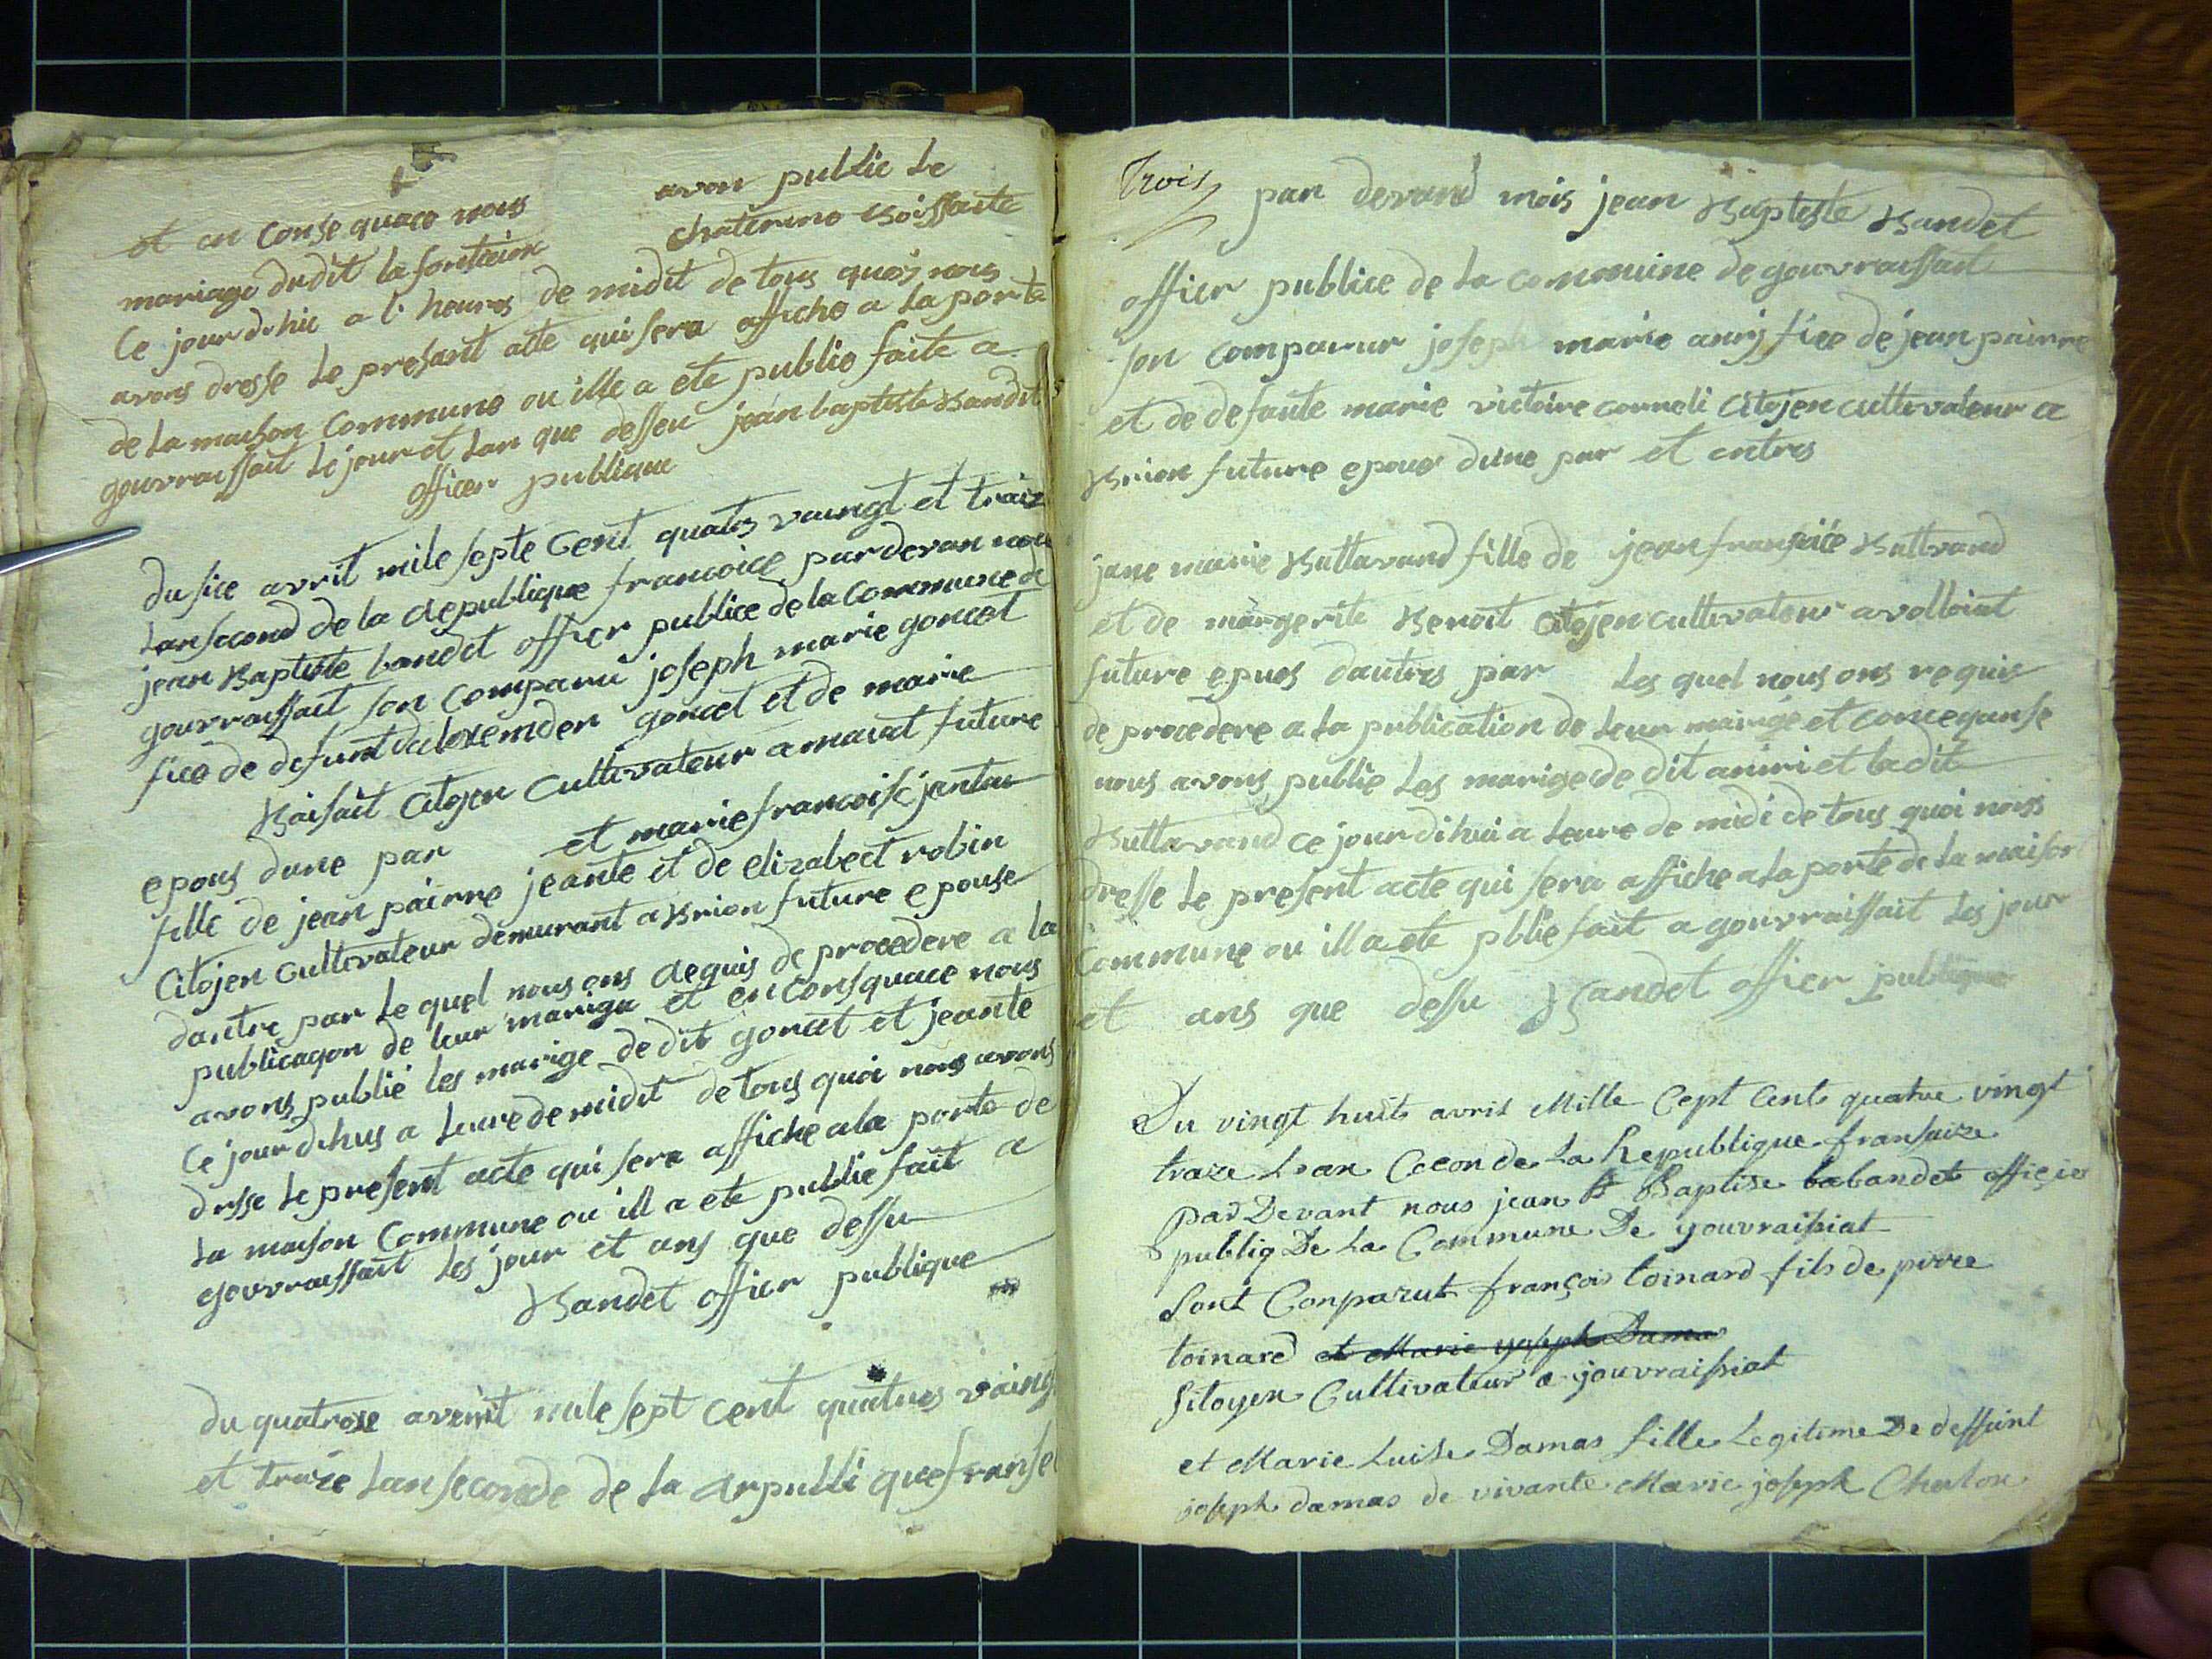 et en consequace nous avon public le
mariage dudit lafontaion chaterino Boissaite
Ce jourdhic a l'heures de midit de tous quois nous
avons dresse le presant acte qui sera afficho a la porte
de la maison Commune ou ille a ete publie faite a
gouvraissait le jour et lan que desseu jean baptiste Bandit
officer publique
du sice avrit mile septe Cent quatrs vaingt et traiz
Lan second de la Republique francoice pardevan nou
jean Baptiste bandet officr publice de la Commune de
gouvraissait son Comparu joseph marie goncet
fice de defunt dalexemder goncet et de marie
Baisait Citoyen Cultivateur a navat future
epous dune par et marie francoise jantas
fille de jean pairre jeante et de elizabect robin
Citojen Cultivateur demurant a Brion future epouse
dautre par Le quel nous ons Requis de procedere a la
publicaqon de leur marige et en Consquace nous
avons publie les marige de dit goncet et jeante
Ce jourdihus a leure de midit de tous quoi nous avons
drsse Le present acte qui sera affiche ala porte de
La maison Commune ou ill a ete publie fait a
gouvraissait les jour et ans que dessu
Bandet officr publique
du quatrose avrit mile sept cent quatres vaing
et traize Lan seconde de la Republi que franse
Trois
par devand mois jean Baptiste Bandet
officr publice de la commune de gouvraissait
son comparur joseph marie anrj fice de jean pairre
et de defante marie victoire corneli Citojen cultivateur a
Brion future epous dune par et entres
jane marie Buttavand fille de jean fransice Buttvand
et de margerite Benoit Citojen cultivateur a volloint
future epues dautres par Les quel nous ons requis
de procedere a la publication de leur mairige et concequnse
nous avons publie Les marige de dit anrri et la dit
Buttavand ce jourdihui a leure de midi de tous quoi nous
dresse Le present acte qui sera affiche a la porte de la maison
Commune ou ill a ete pblie fait a gouvraissait les jour
et ans que dessu Bandet officr publique
Du vingt huit avril Mille Cept Cent quatre vingt
traze Lan Cecon de La Republique fransaize
par Devant nous jean B Baptise babandet officie
publiq De La Commune De gouvraissiat
Sont Conparut françois toinard fils de pirre
toinard et Marie yoseph Damas
Sitoyen Cultivateur a gouvraissiat
et Marie Luise Damas fille Legitime De deffunt
joseph damas de vivante Marie joseph Charlon